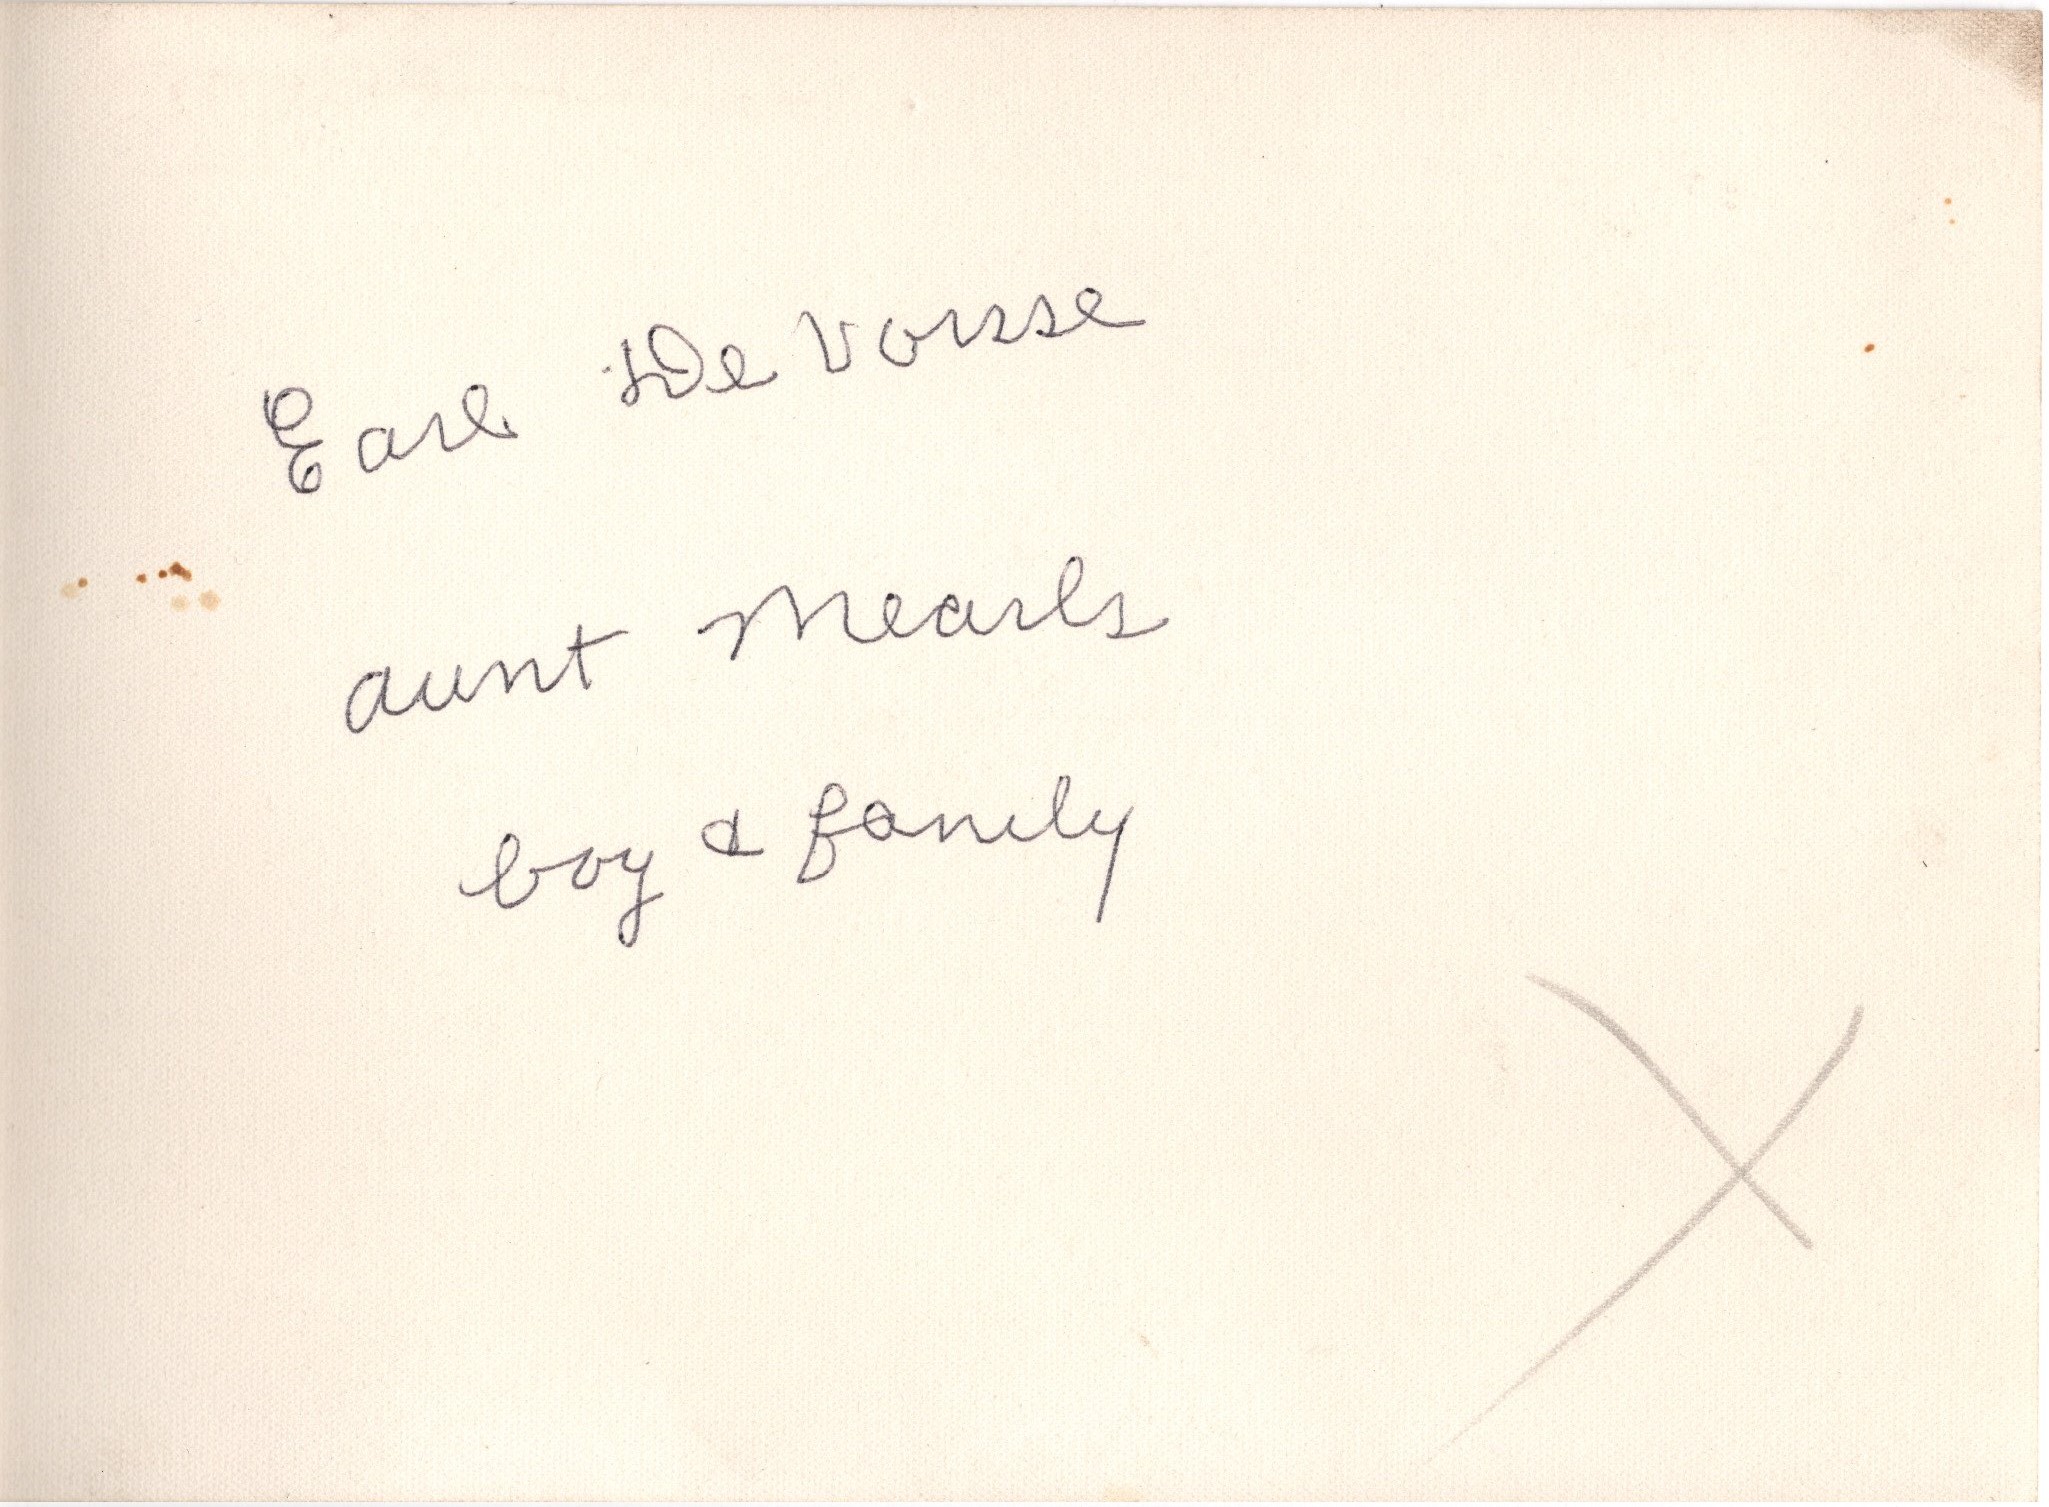 Earl DeVorsse
aunt Mearls
boy & family